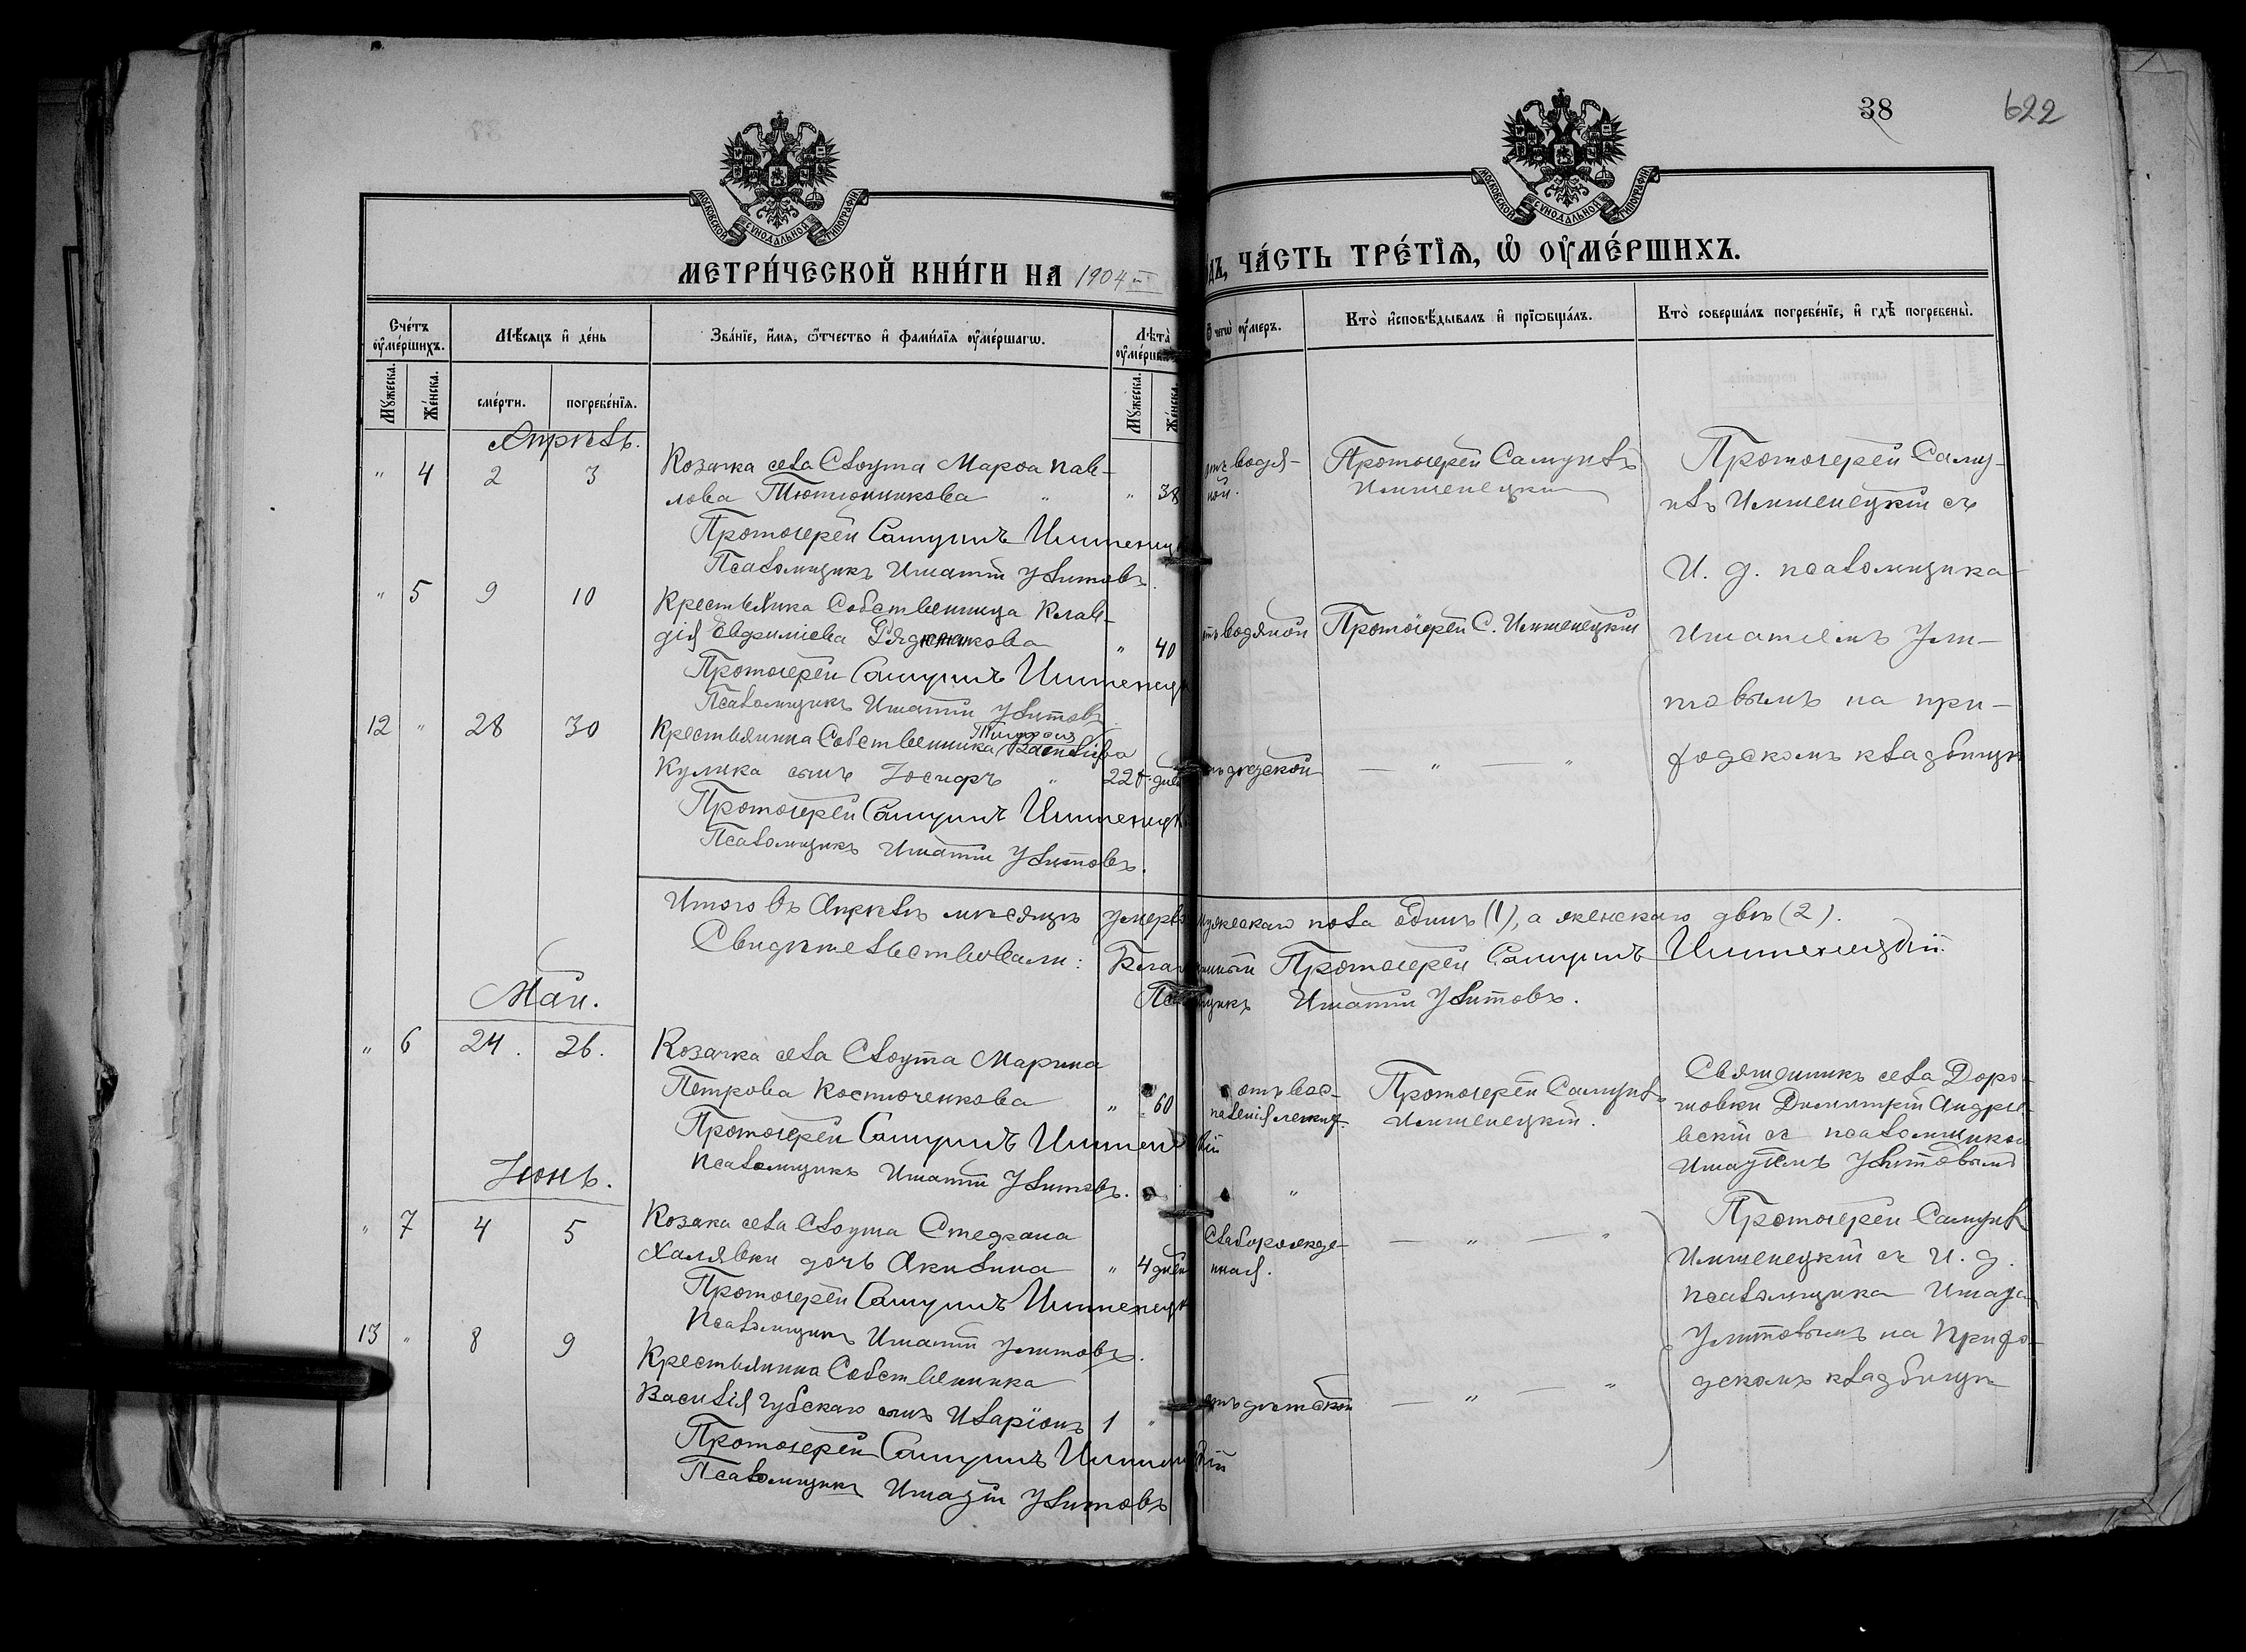 38
622
МОСКОВСКОЙ СѴНОДАЛЬНОЙ ТИПОГРАФІИ
МОСКОВСКОЙ СѴНОДАЛЬНОЙ ТИПОГРАФІИ
МЕТРИ́ЧЕСКОЙ КНИ́ГИ НА 1904й
ДЪ, ЧА́СТЬ ТРЕ́ТІѦ, Ѽ ОУ҆МЕ́РШИХЪ.
Сче́тъ оу҆ме́ршихъ.
Мꙋ́жеска.
Же́нска.
Мѣ́сяцъ и҆ де́нь
сме́рти.
погребе́нїѧ.
Зва́нїе, и҆́мѧ, ѻ҆́тчество и҆ фами́лїѧ оу҆ме́ршагѡ.
Лѣ́та оу҆ме́рша
Мꙋ́жеска.
Же́нска.
Ѿ чегѡ̀ оу҆́меръ.
Кто̀ и҆сповѣ́дывалъ и҆ прїѡбща́лъ.
Кто̀ соверша́лъ погребе́нїе, и҆ гдѣ̀ погребены̀.
Апрѣль.
" 4 2 3
Козачка села Слоута Марѳа Пав-
лова Тютюнникова " " 38
Протоіерей Самуилъ Имшенецк
Псаломщикъ Игнатій Улитовъ.
отъ водя-
ной.
Протоіерей Самуилъ
Имшенецкій
Протоіерей Саму-
илъ Имшенецкій съ
И. д. псаломщика
Игнатіемъ Ули-
товымъ на при-
ходскомъ кладбищѣ
" 5 9 10
Крестьянка Собственница Клав-
дія Евфиміева " 40
Протоіерей Самуилъ Имшенецк
Псаломщикъ Игнатій Улитовъ.
отъ водяной
Протоіерей С. Имшенецкій
12 " 28 30
Крестьянина Собственника Тимофея Васильева
Кулика сынъ Іосифъ " 22 дней
Протоіерей Самуилъ Имшенецк
Псаломщикъ Игнатій Улитовъ.
— " — "
Итого въ Апрѣлѣ мѣсяцѣ умерло мужескаго пола одинъ (1), а женскаго двѣ (2).
Свидѣтельствовали: Протоіерей Самуилъ Имшенецкій
Псаломщикъ Игнатій Улитовъ.
Май.
" 6 24. 26.
Козачка села Слоута Марина
Петрова Костюченкова " 60
Протоіерей Самуилъ Имшенецкій
Псаломщикъ Игнатій Улитовъ.
отъ вос-
паленія легких.
Протоіерей Самуилъ
Имшенецкій.
Священникъ села Доро-
товки Димитрій Андрі-
вскій съ псаломщиком
Игнатіемъ Улитовымъ
Іюнь.
" 7 4 5
Козака села Слоута Стефана
Халявки дочь Акилина " 4 дней
Протоіерей Самуилъ Имшенецк
Псаломщикъ Игнатій Улитовъ.
Слаборожде-
нная.
— " — "
Протоіерей Самуилъ
Имшенецкій съ И. д.
псаломщика Игнатіемъ
Улитовымъ на Прихо-
дскомъ кладбищѣ
13 " 8 9
Крестьянина Собственника
Василія Губскаго сынъ Иларіонъ 1 "
Протоіерей Самуилъ Имшенецкій
Псаломщикъ Игнатій Улитовъ
отъ дѣтской
— " — "